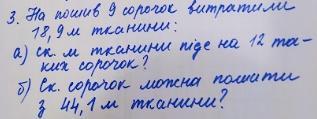 3. На пошив 9 сорочок витратили
18,9 м тканини:
а) ск. м тканини піде на 12 та-
ких сорочок?
б) Ск. сорочок можна пошити
з 44,1 м тканини?